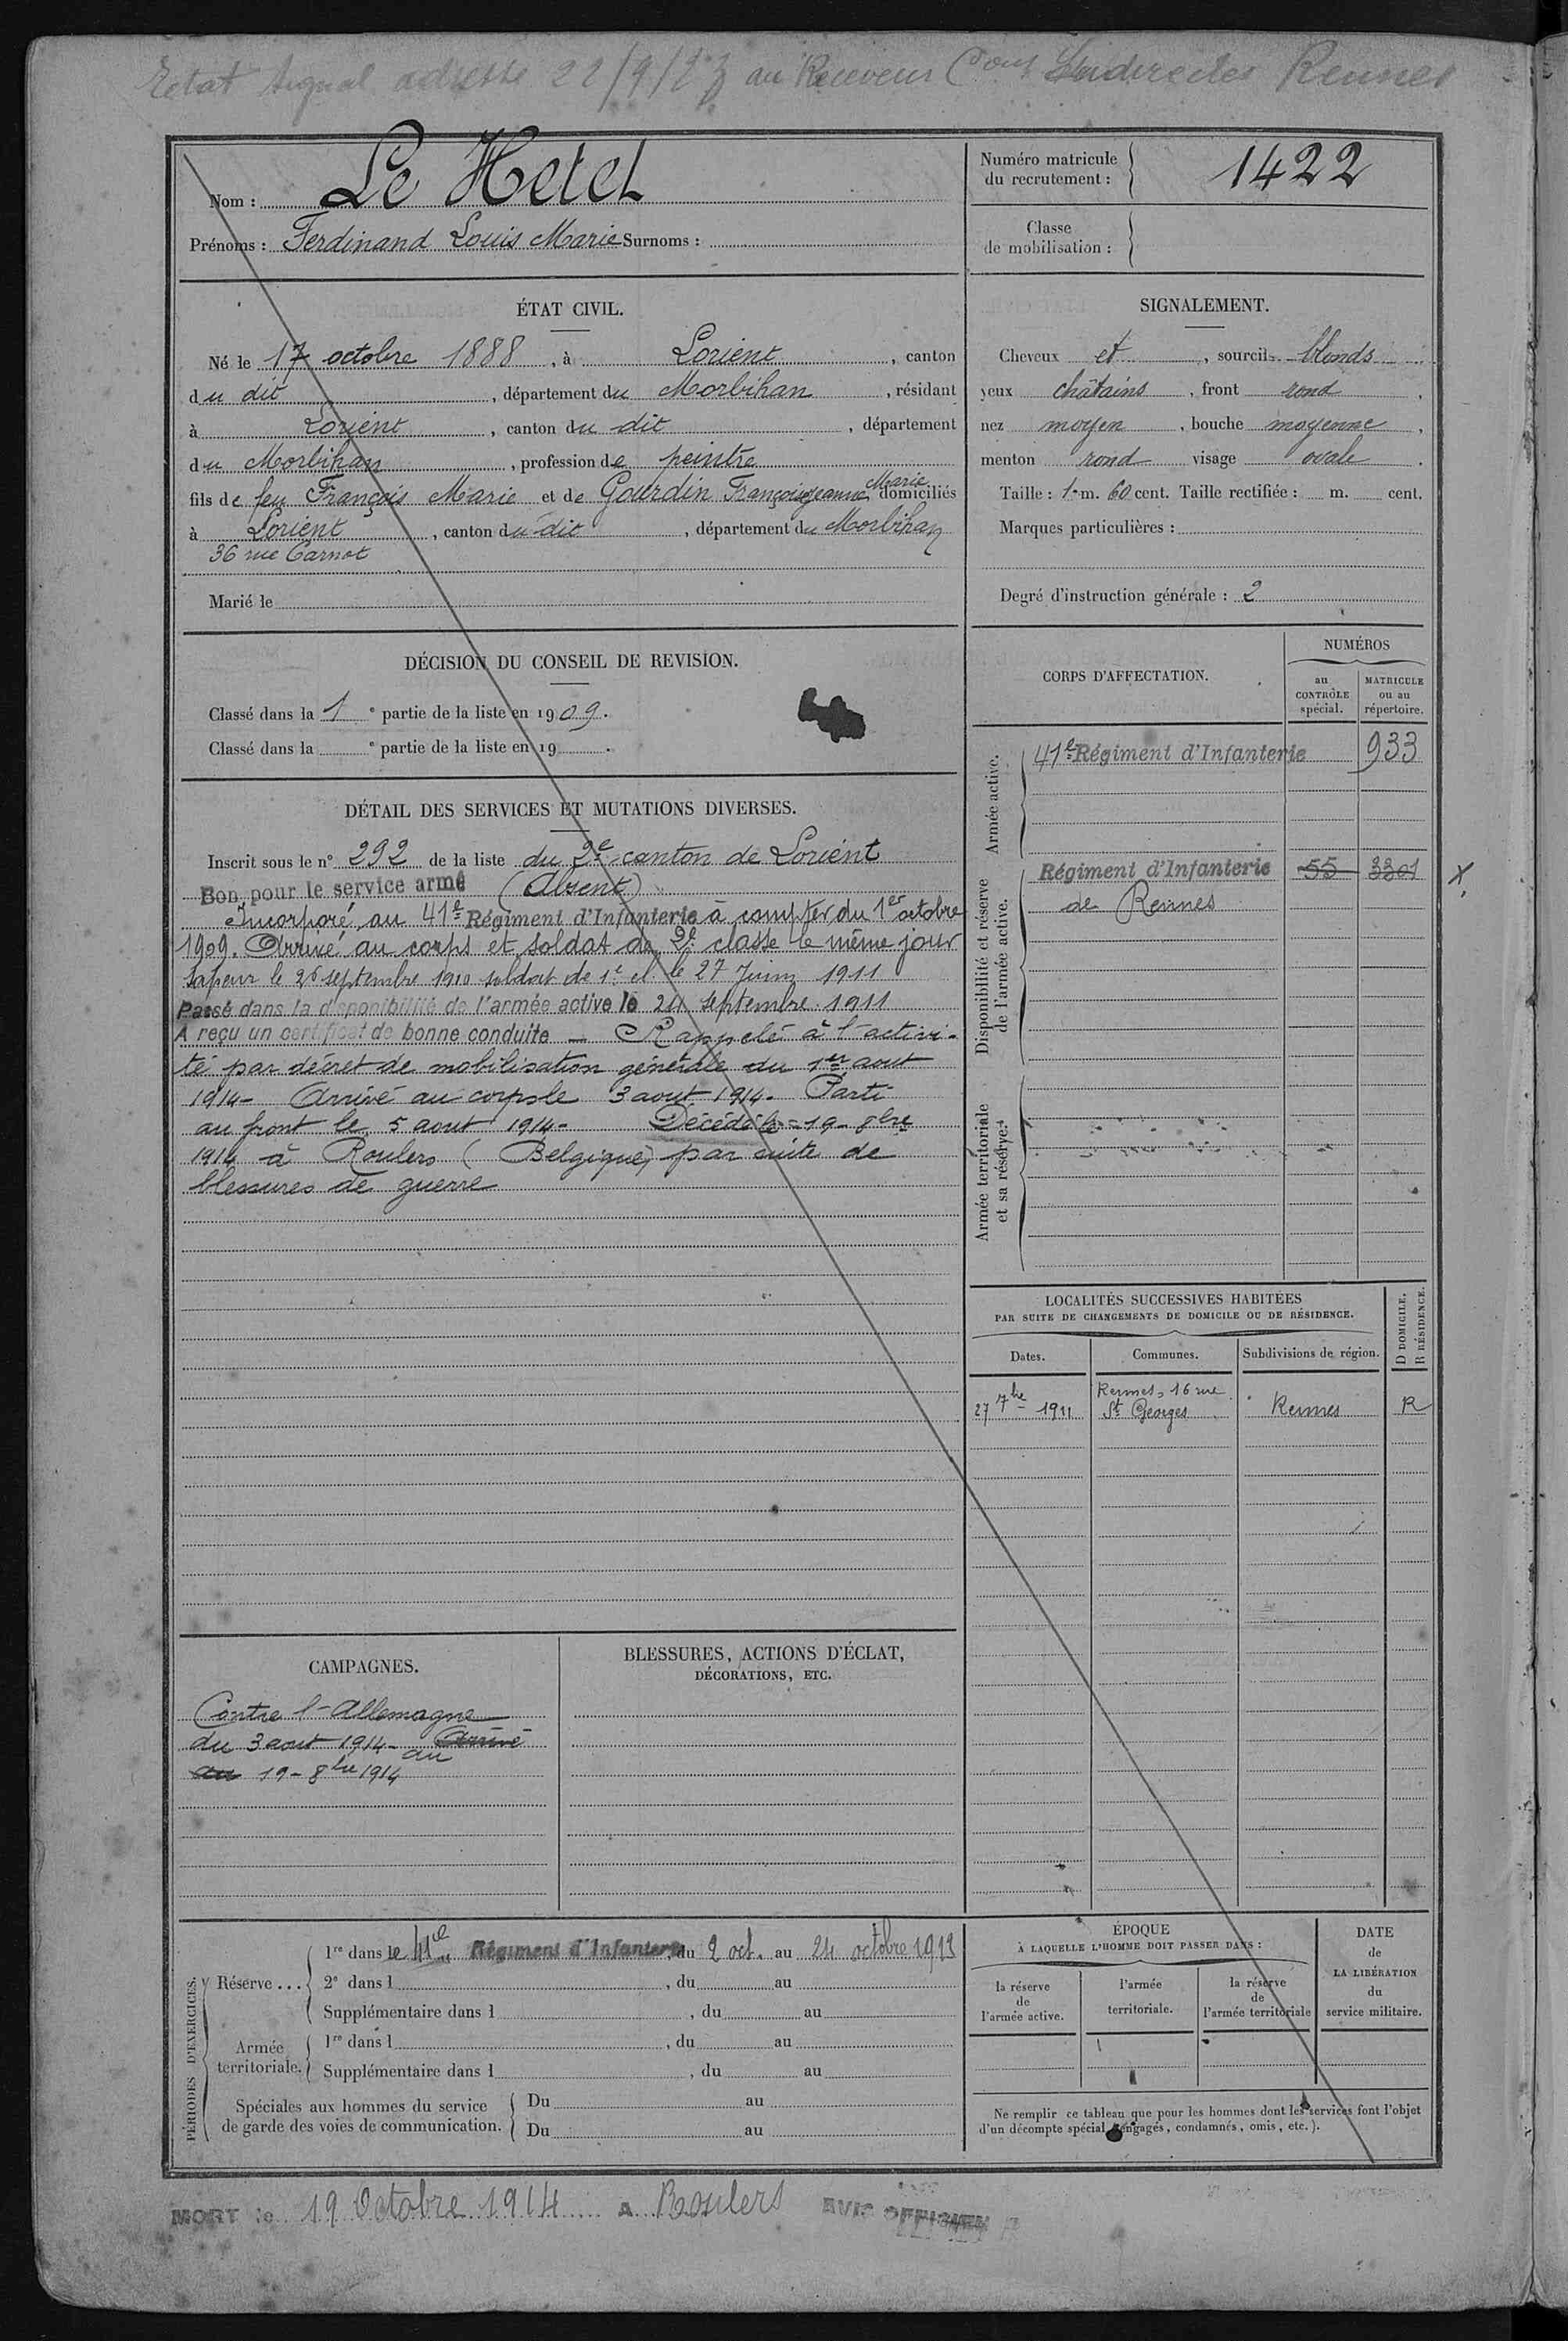 Etat signal adressé 22/9/13 au Receveur Cont Indirectes Rennes
Nom : Le Hetet
Prénoms : Ferdinand Louis Marie Surnoms :
Numéro matricule
du recrutement : 1422
Classe
de mobilisation :
ÉTAT CIVIL.
Né le 17 octobre 1888, à Lorient, canton
du dit, département du Morbihan, résidant
à Lorient, canton du dit, département
du Morbihan, profession de peintre
fils de feu François Marie et de Gourdin Françoise Jeanne Marie domiciliés
à Lorient, canton du dit, département du Morbihan
36 rue Carnot
Marié le
SIGNALEMENT.
Cheveux et, sourcils blonds
yeux châtains, front rond,
nez moyen, bouche moyenne,
menton rond visage ovale.
Taille : 1 m. 60 cent. Taille rectifiée : m. cent.
Marques particulières :
Degré d'instruction générale : 2
DÉCISION DU CONSEIL DE REVISION.
Classé dans la 1e partie de la liste en 1909.
Classé dans la e partie de la liste en 19 .
DÉTAIL DES SERVICES ET MUTATIONS DIVERSES.
Inscrit sous le n° 292 de la liste du 2e canton de Lorient
Bon pour le service armé (Absent)
Incorporé au 41e Régiment d'Infanterie à compter du 1er octobre
1909. Arrivé au corps et soldat de 2e classe le même jour
Sapeur le 26 septembre 1910 soldat de 1e cl. le 27 Juin 1911
Passé dans la disponibilité de l'armée active le 24 septembre 1911
A reçu un certificat de bonne conduite – Rappelé à l'activi-
té par décret de mobilisation générale du 1er aout
1914 - Arrivé au corps le 3 aout 1914. Parti
au front le 5 aout 1914 - Décédé le 19 - 8bre
1914 à Roulers (Belgique) par suite de
blessures de guerre
CORPS D'AFFECTATION.
NUMÉROS
au
CONTRÔLE
spécial.
MATRICULE
ou au
répertoire.
Armée active.
41e Régiment d'Infanterie 933
Disponibilité et réserve
de l'armée active.
Régiment d'Infanterie 55 3301 X
de Rennes
Armée territoriale
et sa réserve.
LOCALITÉS SUCCESSIVES HABITÉES
PAR SUITE DE CHANGEMENTS DE DOMICILE OU DE RÉSIDENCE.
Dates.
Communes.
Subdivisions de région.
D DOMICILE.
R RÉSIDENCE.
27 7bre 1911 Rennes, 16 rue
St Georges Rennes R
CAMPAGNES.
Contre l'Allemagne
du 3 aout 1914 - Arrivé
au au 19 - 8bre 1914
BLESSURES, ACTIONS D'ÉCLAT,
DÉCORATIONS, ETC.
PÉRIODES D'EXERCICES.
Réserve...
1re dans le 41e Régiment d'Infanterie du 2 oct. au 24 octobre 1913
2e dans l , du au
Supplémentaire dans l , du au
Armée
territoriale.
1re dans l , du au
Supplémentaire dans l , du au
Spéciales aux hommes du service
de garde des voies de communication.
Du au
Du au
ÉPOQUE
À LAQUELLE L'HOMME DOIT PASSER DANS :
la réserve
de
l'armée active.
l'armée
territoriale.
la réserve
de
l'armée territoriale
DATE
de
LA LIBÉRATION
du
service militaire.
Ne remplir ce tableau que pour les hommes dont les services font l'objet
d'un décompte spécial (engagés, condamnés, omis, etc.).
MORT le 19 Octobre 1914 A Roulers AVIS OFFICIEL